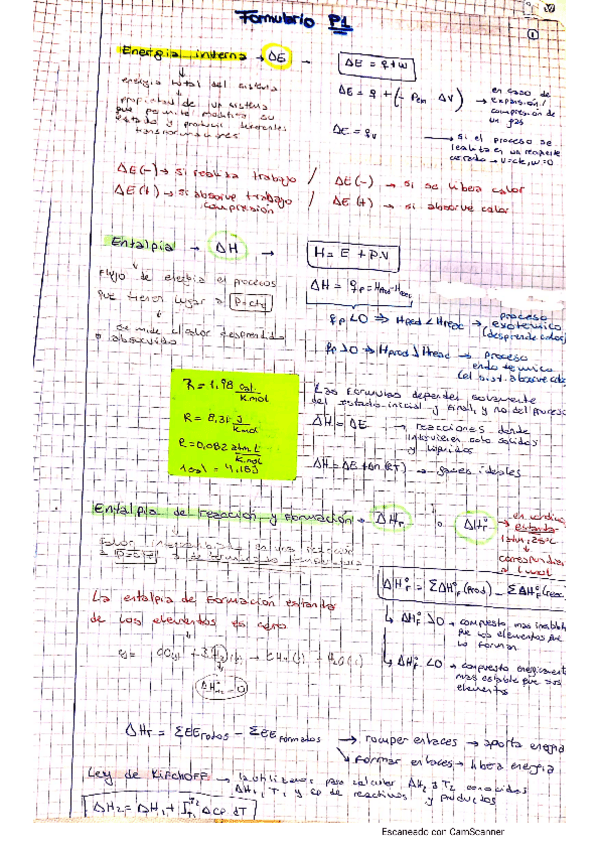 Formulario P1
1
Energía interna → ΔE → ΔE = q+w
energía total del sistema
propiedad de un sistema
que permite modificar su
estado y producir
transformaciones
ΔE = q + (- Pex ΔV) → en caso de
expansión/
compresión de
un gas
ΔE = qv → si el proceso se
realiza en un recipiente
cerrado → V=cte, w=0
ΔE(-) → si realiza trabajo / ΔE(-) → si se libera calor
ΔE(+) → si absorve trabajo / ΔE(+) → si absorve calor
compresión
Entalpía → ΔH → H = E + P.V
Flujo de energía en procesos
que tienen lugar a P=cte
se mide el calor desprendido
o absorvido
ΔH = qp = Hprod - Hreac
qp < 0 ⇒ Hprod < Hreac → proceso
exotérmico
(desprende calor)
qp > 0 ⇒ Hprod > Hreac → proceso
endotérmico
(el sist. absorve calor)
R = 1,98 cal/K.mol
R = 8,31 J/K.mol
R = 0,082 atm.L/K.mol
1 cal = 4,18J
Las formulas dependen solamente
del estado inicial y final, y no del proceso
ΔH = ΔE → reacciones donde
intervienen solo sólidos
y líquidos
ΔH = ΔE + Δn(RT) → gases ideales
Entalpía de reacción y formación → ΔHr o ΔHf°
→ en condic.
estandar
1atm, 25°C
ΔHr° = ΣΔHf°(prod) - ΣΔHf°(reac.
La entalpía de formación estandar
de los elementos es cero
↳ ΔHf° > 0 → compuesto mas inestable
que los elementos que
lo forman
↳ ΔHf° < 0 → compuesto energicamente
mas estable que sus
elementos
ΔHr = ΣEErotos - ΣEEformados → romper enlaces → aporta energía
↘ formar enlaces → libera energía
Ley de Kirchoff → la utilizamos para calcular ΔH2 a T2 conocidos
ΔH1, T1 y cp de reactivos y productos
ΔH2 = ΔH1 + ∫T1T2 ΔCp dT
Escaneado con CamScanner